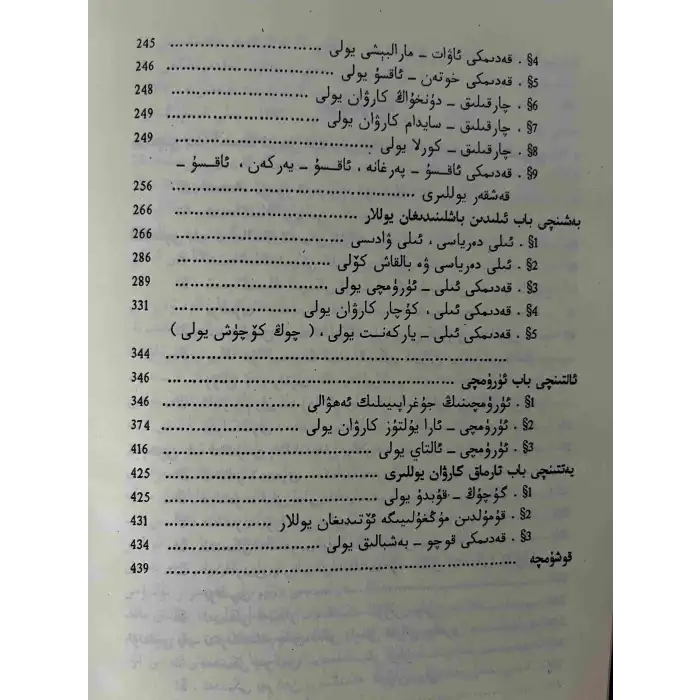 §4 . قەدىمكى ئاۋات ـ مارالبېشى يولى .............................. 245
§5 . قەدىمكى خوتەن ـ ئاقسۇ يولى .............................. 246
§6 . چارقىلىق ـ دۇنخۇاڭ كارۋان يولى .............................. 248
§7 . چارقىلىق ـ سايدام كارۋان يولى .............................. 249
§8 . چارقىلىق ـ كورلا يولى .............................. 249
§9 . قەدىمكى ئاقسۇ ـ پەرغانە ، ئاقسۇ ـ يەركەن ، ئاقسۇ ـ
قەشقەر يوللىرى .............................. 256
بەشىنچى باب ئىلىدىن باشلىنىدىغان يوللار .............................. 266
§1 . ئىلى دەرياسى ، ئىلى ۋادىسى .............................. 266
§2 . ئىلى دەرياسى ۋە بالقاش كۆلى .............................. 286
§3 . قەدىمكى ئىلى ـ ئۈرۈمچى يولى .............................. 289
§4 . قەدىمكى ئىلى ، كۇچار كارۋان يولى .............................. 331
§5 . قەدىمكى ئىلى ـ ياركەنت يولى ، ( چوڭ كۆچۈش يولى )
.............................. 344
ئالتىنچى باب ئۈرۈمچى .............................. 346
§1 . ئۈرۈمچىنىڭ جۇغراپىيىلىك ئەھۋالى .............................. 346
§2 . ئۈرۈمچى ـ ئارا يۇلتۇز كارۋان يولى .............................. 374
§3 . ئۈرۈمچى ـ ئالتاي يولى .............................. 416
يەتتىنچى باب تارماق كارۋان يوللىرى .............................. 425
§1 . گۇچۇڭ ـ قۇبدۇ يولى .............................. 425
§2 . قۇمۇلدىن مۇڭغۇلىيىگە ئۆتىدىغان يوللار .............................. 431
§3 . قەدىمكى قوچو ـ بەشبالىق يولى .............................. 434
قوشۇمچە .............................. 439